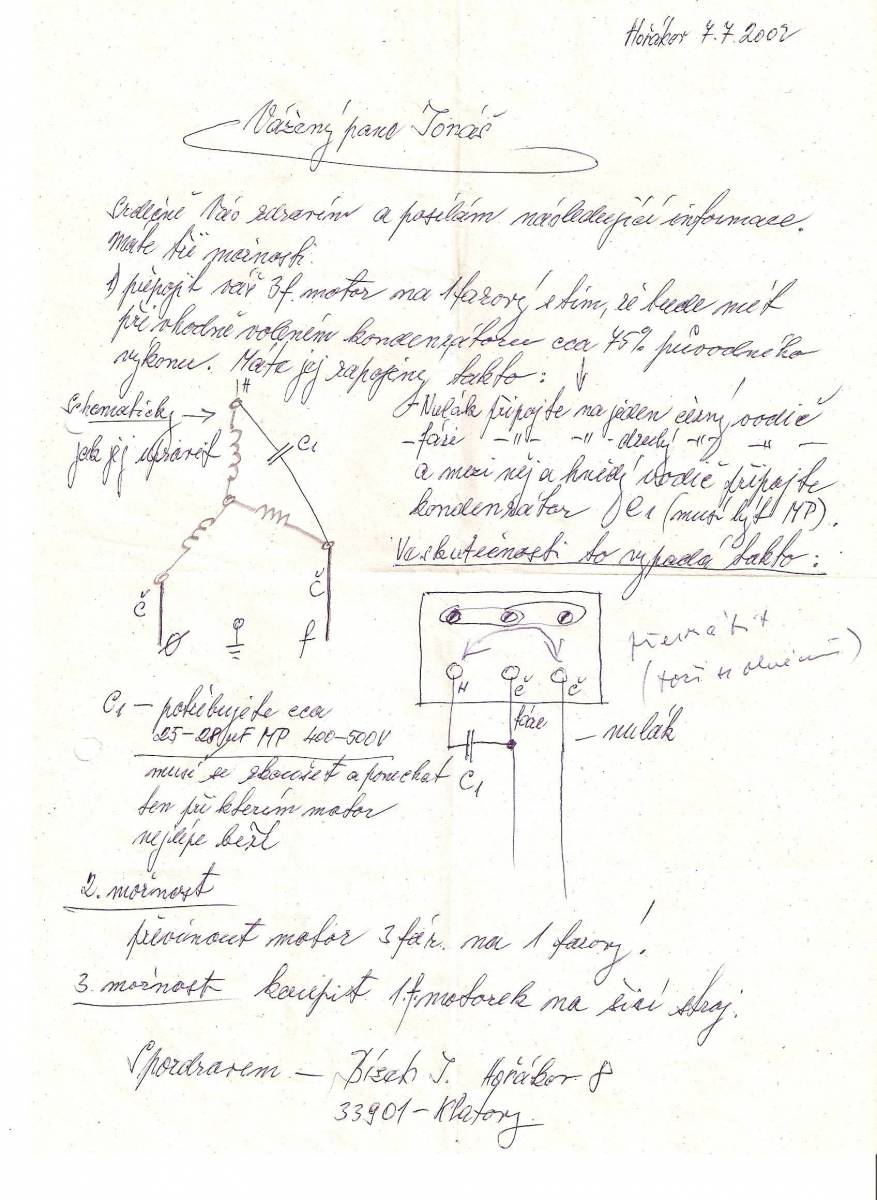 Hořákov 7.7.2002
Vážený pane Tonáš
Srdečně Vás zdravím a posílám následující informace.
máte tři možnosti.
1) přepojit váš 3f. motor na 1 fázový s tím, že bude mít
při vhodně voleném kondenzátoru cca 75% původného
výkonu. Máte jej zapojený takto:
Schematicky →
jak jej upravit
H
C1
Č
Č
Ø
f
- Nulák připojte na jeden černý vodič
- fázi -"- -"- druhý -"- -"-
a mezi něj a hnědý vodič připojte
kondenzátor C1 (musí být MP).
Ve skutečnosti to vypadá takto:
H Č Č
fáze
- nulák
C1
převrátit
C1 - potřebujete cca
25-28µF MP 400-500V
musí se zkoušet a ponechat
ten při kterém motor
nejlépe běží
2. možnost
převinout motor 3 fáz. na 1 fázový!
3. možnost koupit 1.f. motorek na šicí stroj.
S pozdravem - J. Hořákov 8
33901 - Klatovy